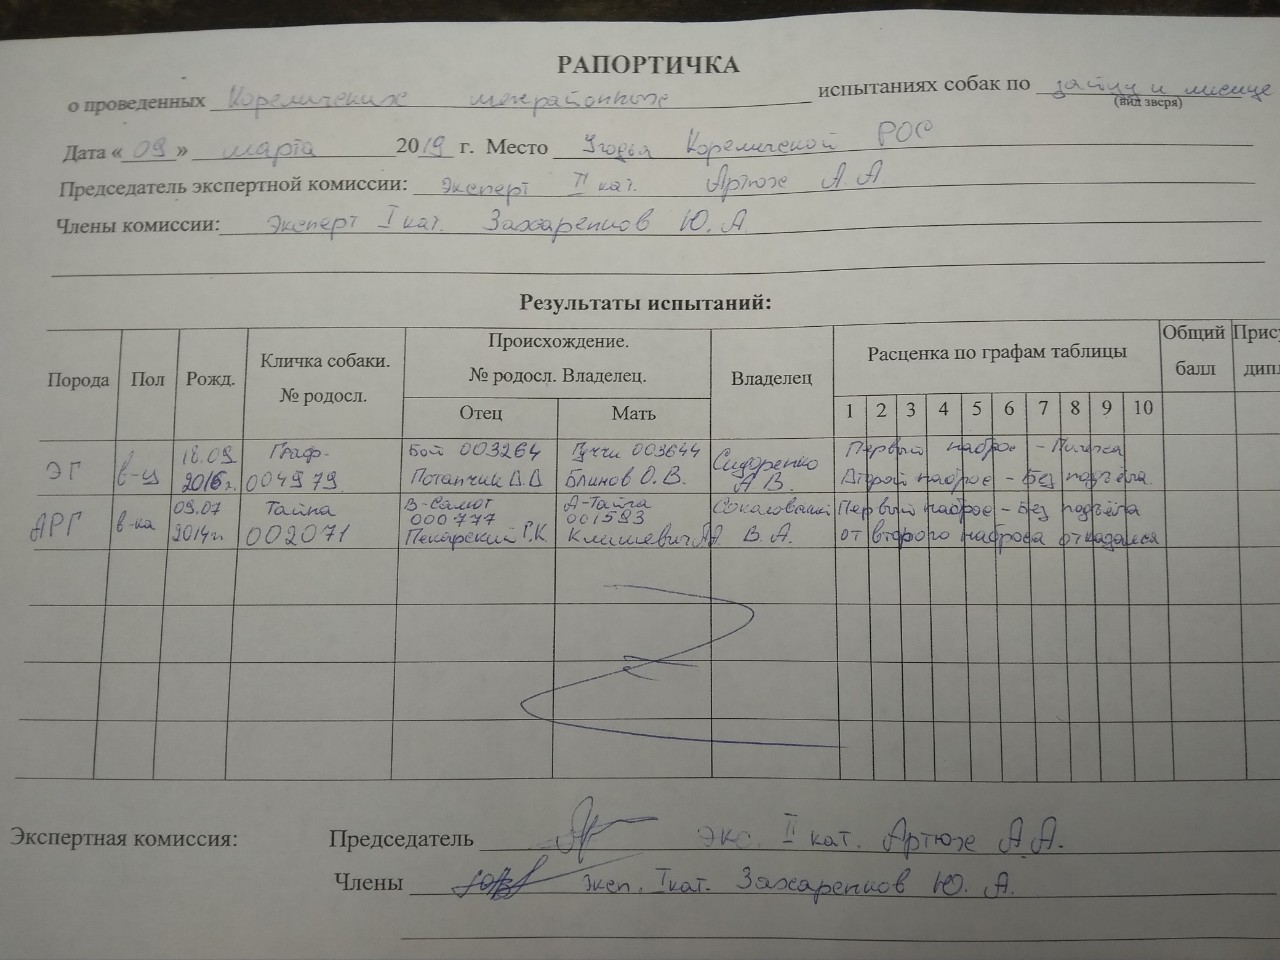 РАПОРТИЧКА
о проведенных Кореличских межрайонных испытаниях собак по зайцу и лисице
(вид зверя)
Дата «09» марта 2019 г. Место Угодья Кореличской РОС
Председатель экспертной комиссии: Эксперт II кат. Артюх А.А
Члены комиссии: Эксперт I кат. Захаренков Ю.А.
Результаты испытаний:
Порода Пол Рожд. Кличка собаки. № родосл. Происхождение. № родосл. Владелец. Владелец Расценка по графам таблицы Общий балл
Отец Мать 1 2 3 4 5 6 7 8 9 10
ЭГ в-ц 18.09 2016г. Граф 004979 Бой 003264 Потапчик Гуччи 003644 Блинов О.В. Сидоренко А В. Первый наброс - Второй наброс - Без подъёма
АРГ в-ка 09.07 2014г. Тайна 002071 В-Самот 000777 Пекарский Г.К. А-Тайга 001593 Климкевич В.А. Первый наброс - Без подъёма от второго наброса отказался
Экспертная комиссия: Председатель экс. II кат. Артюх А.А.
Члены эксп. I кат. Захаренков Ю.А.